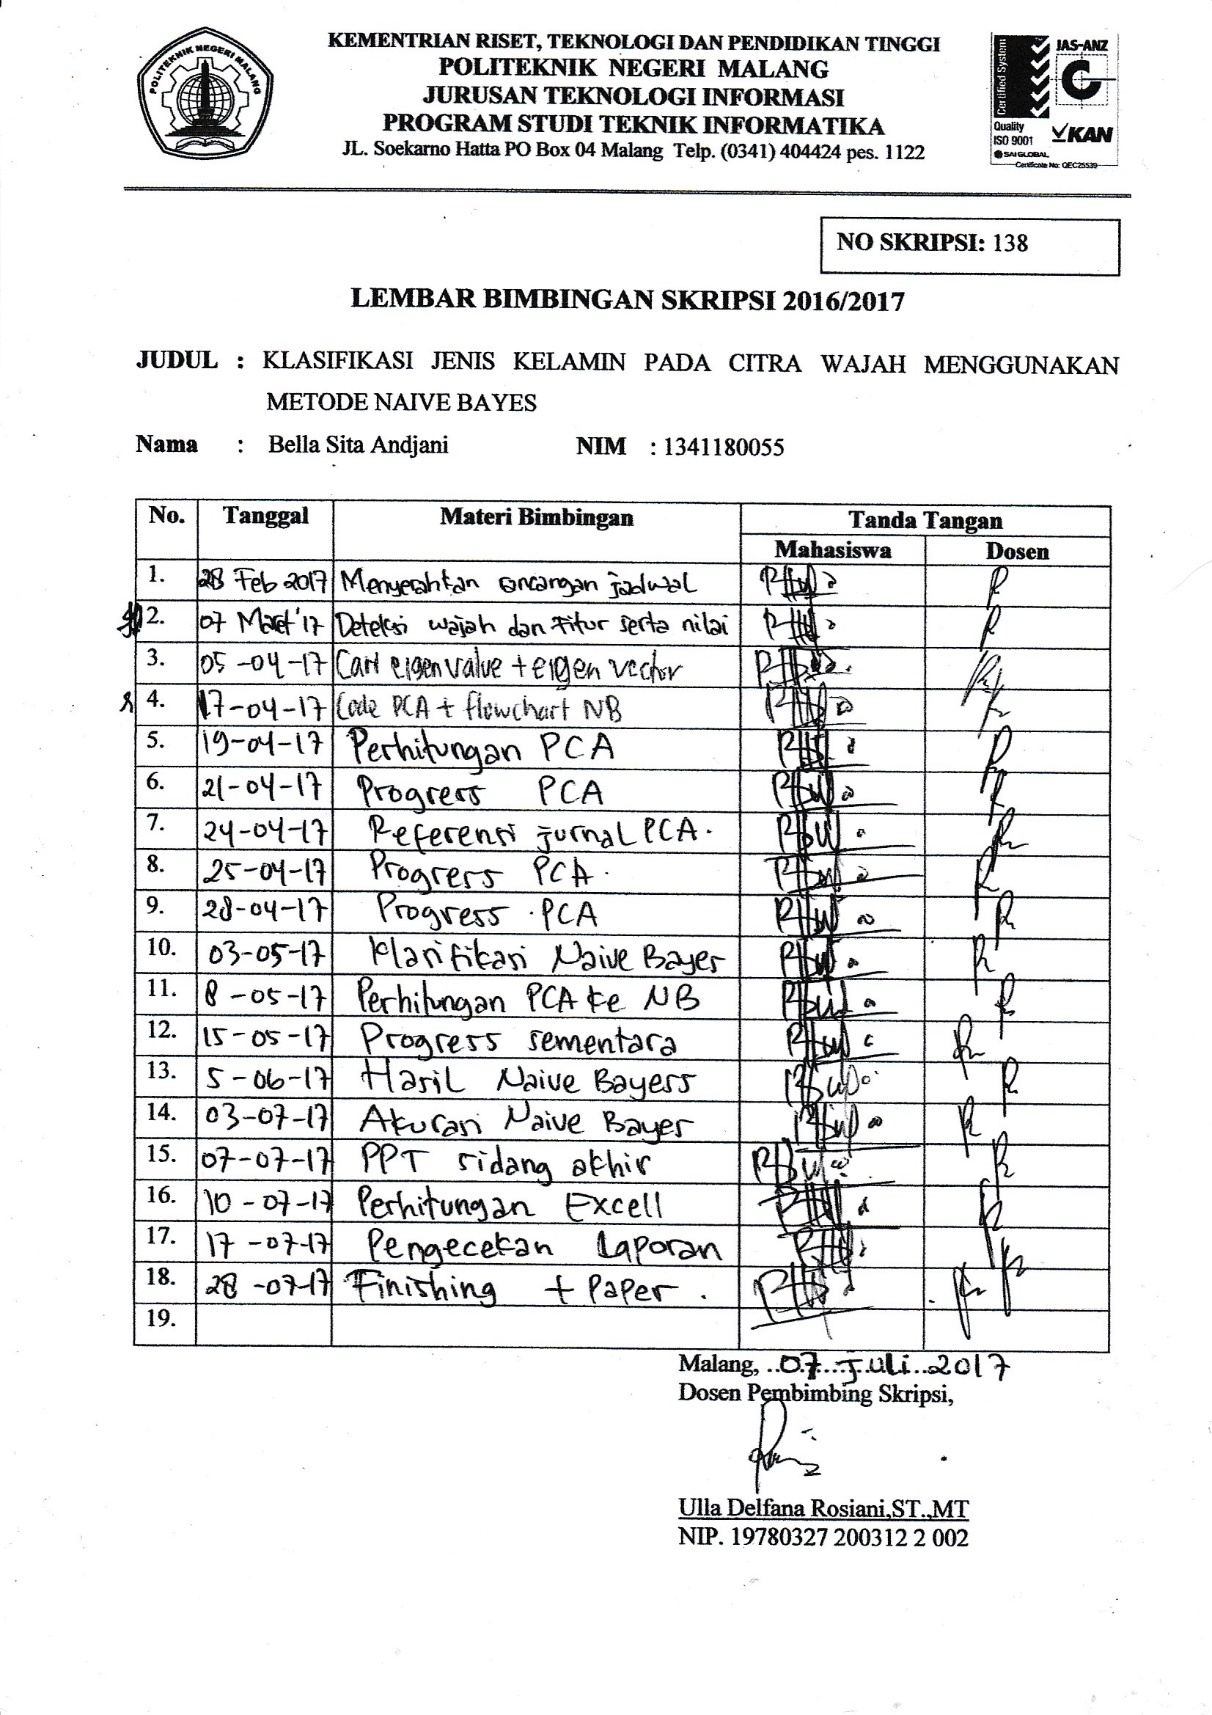 POLITEKNIK NEGERI MALANG
KEMENTRIAN RISET, TEKNOLOGI DAN PENDIDIKAN TINGGI
POLITEKNIK NEGERI MALANG
JURUSAN TEKNOLOGI INFORMASI
PROGRAM STUDI TEKNIK INFORMATIKA
JL. Soekarno Hatta PO Box 04 Malang Telp. (0341) 404424 pes. 1122
Certified System
JAS-ANZ
Quality
ISO 9001
KAN
SAI GLOBAL
Certificate No: QEC25539
NO SKRIPSI: 138
LEMBAR BIMBINGAN SKRIPSI 2016/2017
JUDUL : KLASIFIKASI JENIS KELAMIN PADA CITRA WAJAH MENGGUNAKAN
METODE NAIVE BAYES
Nama : Bella Sita Andjani NIM : 1341180055
No. Tanggal Materi Bimbingan Tanda Tangan
Mahasiswa Dosen
1. 28 Feb 2017 Menyerahkan rancangan jadwal
2. 07 Maret '17 Deteksi wajah dan Fitur serta nilai
3. 05-04-17 Cari eigen value + eigen vector
4. 17-04-17 Code PCA + flowchart NB
5. 19-04-17 Perhitungan PCA
6. 21-04-17 Progress PCA
7. 24-04-17 Referensi jurnal PCA.
8. 25-04-17 Progress PCA.
9. 28-04-17 Progress PCA
10. 03-05-17 Klasifikasi Naive Bayes
11. 8-05-17 Perhitungan PCA ke NB
12. 15-05-17 Progress sementara
13. 5-06-17 Hasil Naive Bayess
14. 03-07-17 Akurasi Naive Bayes
15. 07-07-17 PPT sidang akhir
16. 10-07-17 Perhitungan Excell
17. 17-07-17 Pengecekan Laporan
18. 28-07-17 Finishing + Paper.
19.
Malang, 07 Juli 2017
Dosen Pembimbing Skripsi,
Ulla Delfana Rosiani,ST.,MT
NIP. 19780327 200312 2 002